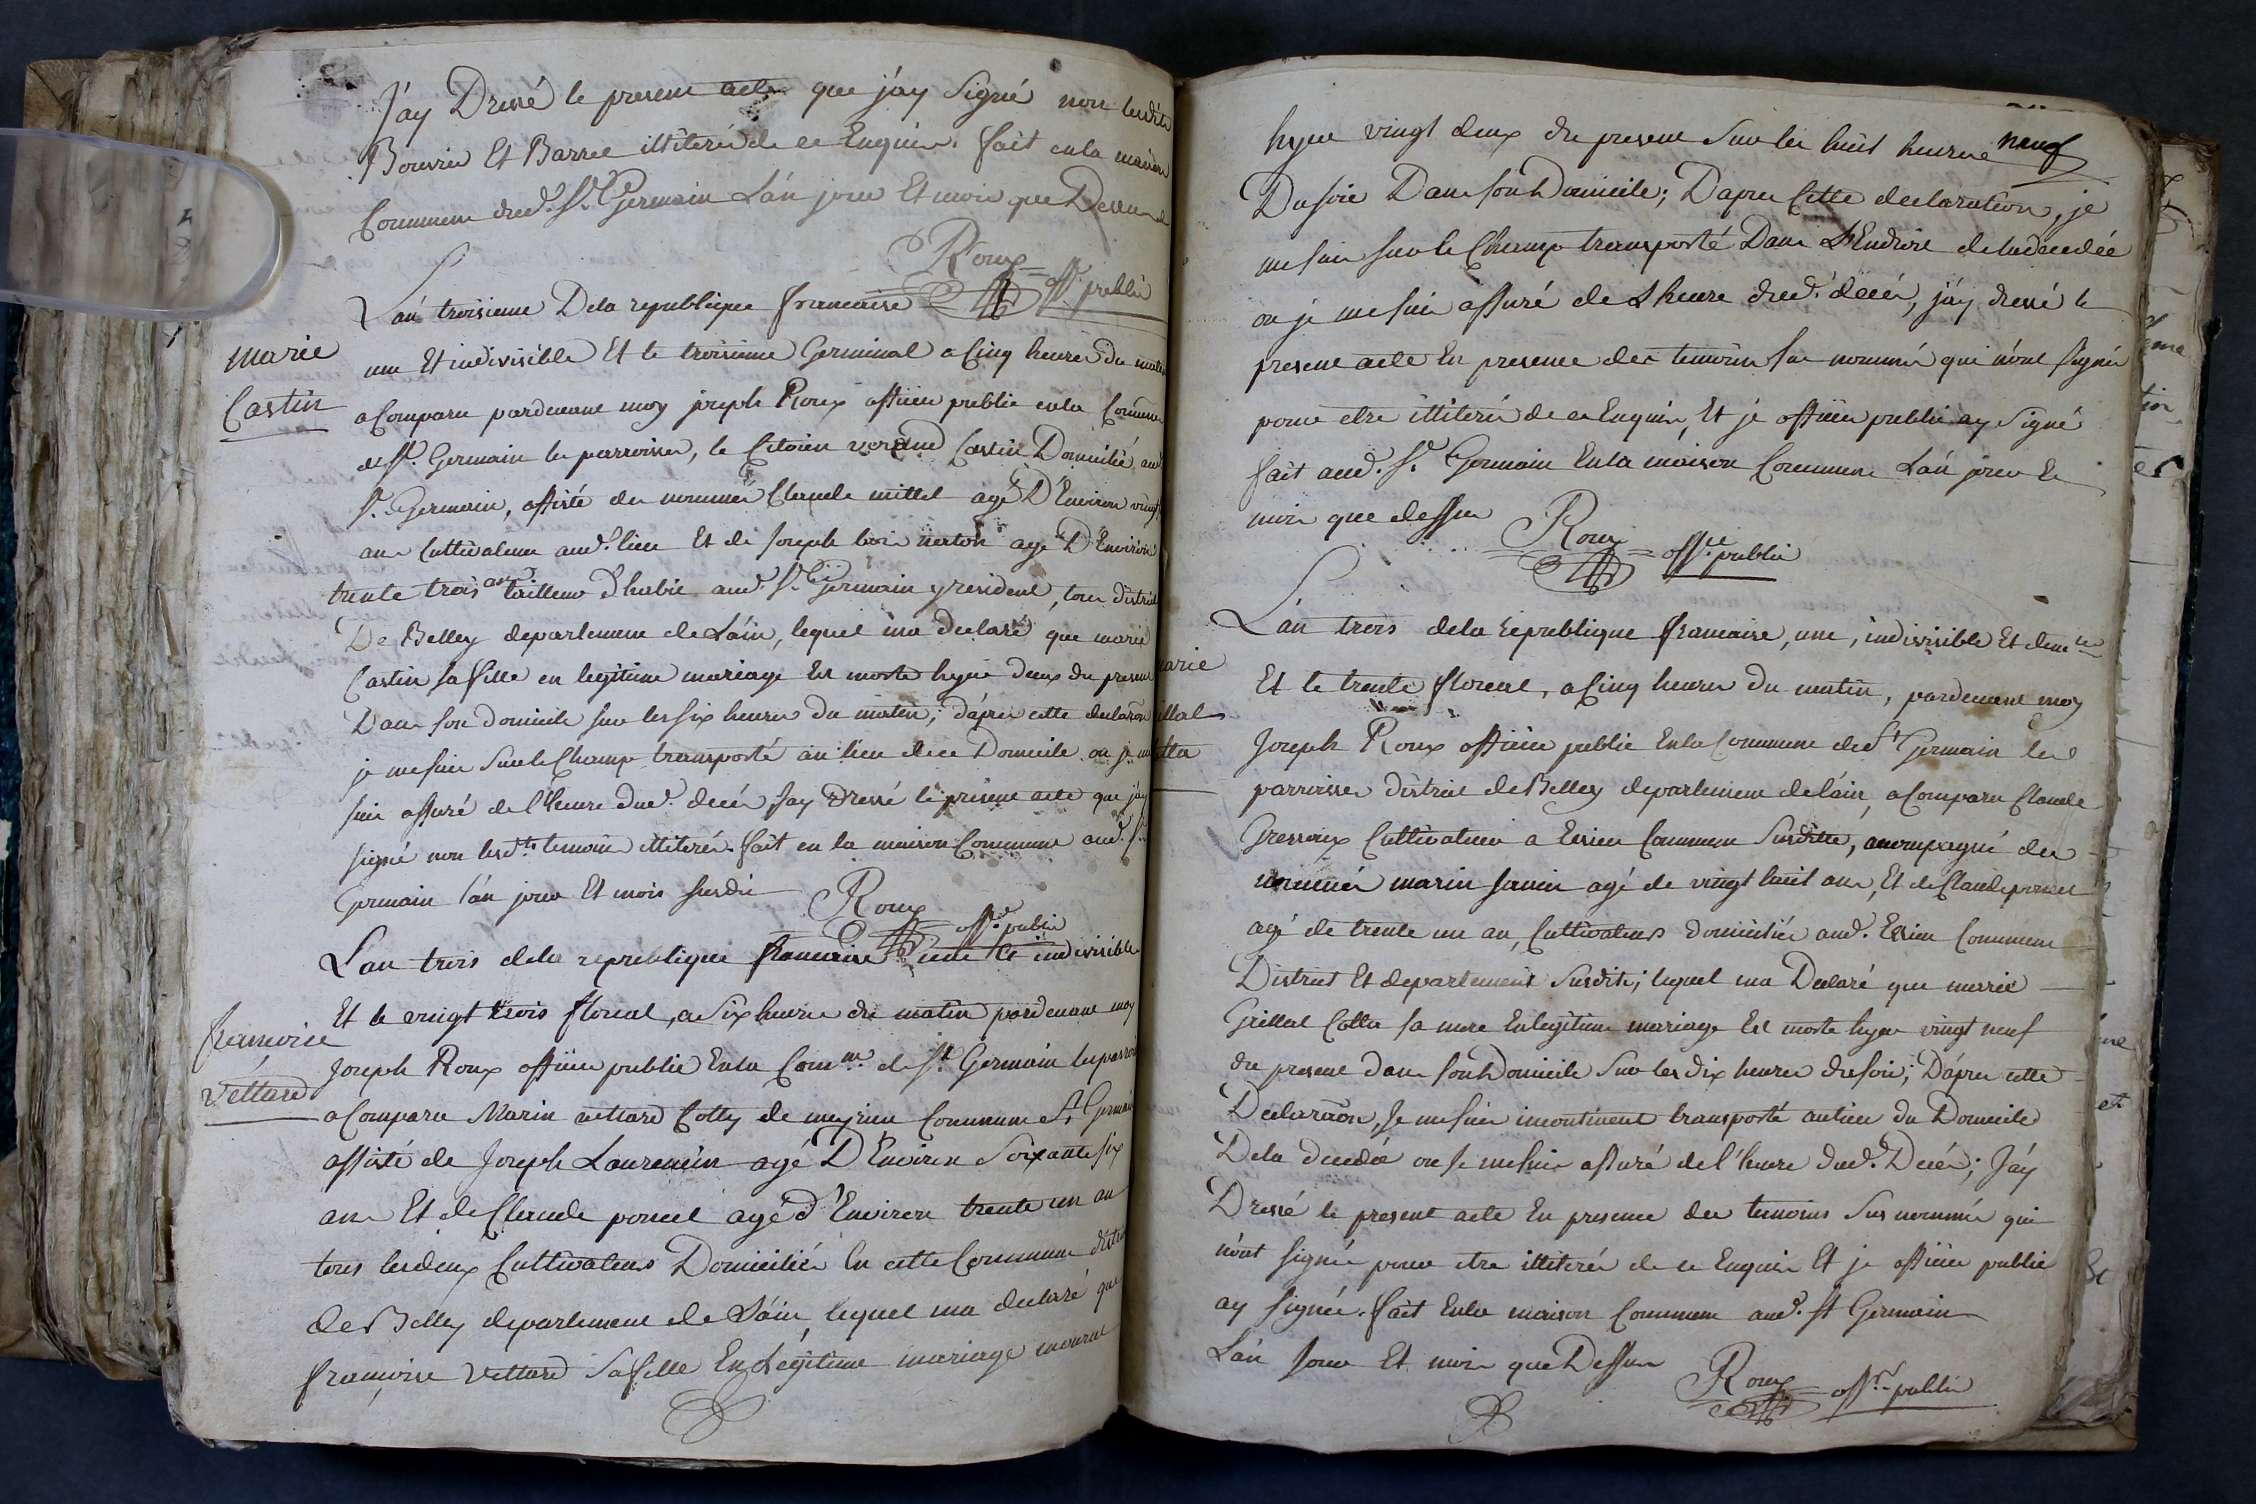 J'ay Dressé le present acte que j'ay Signé non lesdits
Bouvier Et Barre illiterés de ce Enquis. fait en la maison
Commune dud. St. Germain L'an jour Et mois que Dessus
Roux off. public
L'an troisieme De la republique francaise
une Et indivisible Et le troisieme Germinal a Cinq heures du matin
marie
Castin
a Comparu pardevant moy joseph Roux officier public en la Commune
de St. Germain les parroisses, le Citoien Castin Domicilié aud.
St. Germain, assisté des nommés Claude mittet agé D'Environ vingt
ans Cultivateur aud. lieu Et de Joseph agé D'Environ
trente trois ans tailleur d'habit aud. St. Germain y resident, tous district
De Belley departement de L'ain, lequel ma declaré que marie
Castin sa fille en legitime mariage Est morte hyer deux du present
Dans son domicile sur les six heures du matin; d'apres cette declaraõn
je me suis Sur le Champ transporté au lieu de ce Domicile ou je me
suis assuré de l'heure dud. decés, Jay Dressé le présent acte que j'ay
signé non lesdts. temoins illiterés. fait en la maison Commune aud. St.
Germain l'an jour Et mois susdit
Roux off. public
L'an trois de la republique francaise une Et indivisible
Et le vingt trois floreal, a Six heures du matin pardevant moy
francoise
Vettard
Joseph Roux officier public En la Comm. de St. Germain les parrois
a Comparu Marin vettard Cotty de meyrieu Commune St. Germain
assisté de Joseph Laurencin agé D'Environ Soixante six
ans Et de Claude poncet agé d'Environ trente un an
tous les deux Cultivateurs Domiciliés En cette Commune district
de Belley departement de L'ain, lequel ma declaré que
francoise Vettard Sa fille En Légitime mariage mourut
hyer vingt deux du present Sur les huit heures neuf
Du soir Dans son Domicile; Dapres Cette declaration, je
me suis sur le Champ transporté Dans L'Endroit de la decedée
ou je me suis assuré de L'heure dud. decés, j'ay dressé le
present acte En presence des temoins sus nommés qui n'ont signé
pour etre illiterés de ce Enquis, Et je officier public ay Signé
fait aud. St. Germain En la maison Commune L'an jour Et
mois que dessus
Roux off. public
L'an trois de la republique francaise, une, indivisible Et demcr.
Et le trente floreal, a Cinq heures du matin, pardevant moy
arie
illat
otta
Joseph Roux officier public En la Commune de St Germain les
parroisses district de Belley departement de l'ain, a Comparu Claude
Gressoux Cultivateur a Essieu Commune Susditte, accompagné des
nommés marin agé de vingt huit ans, Et de Claude poncet
agé de trente un an, Cultivateurs domiciliés aud. Essieu Commune
District Et departement Susdits; lequel ma Declaré que marie
Grillat Cotta sa mere En legitime mariage Est morte hyer vingt neuf
du present dans son Domicile Sur les dix heures du soir; D'apres cette
Declaraõn, Je me suis incontinent transporté au lieu du Domicile
De la decedée ou je me suis assuré de l'heure dud. Decés; J'ay
Dressé le present acte En presence des temoins Sus nommés qui
n'ont signés pour etre illiterés de ce Enquis Et je officier public
ay signé. fait En la maison Commune aud. St Germain
L'an Jour Et mois que Dessus
Roux offr. public